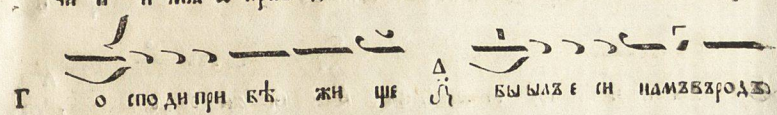 Г о спо ди при бѣ жи ще Д бы ылъ е си намъ въ родъ